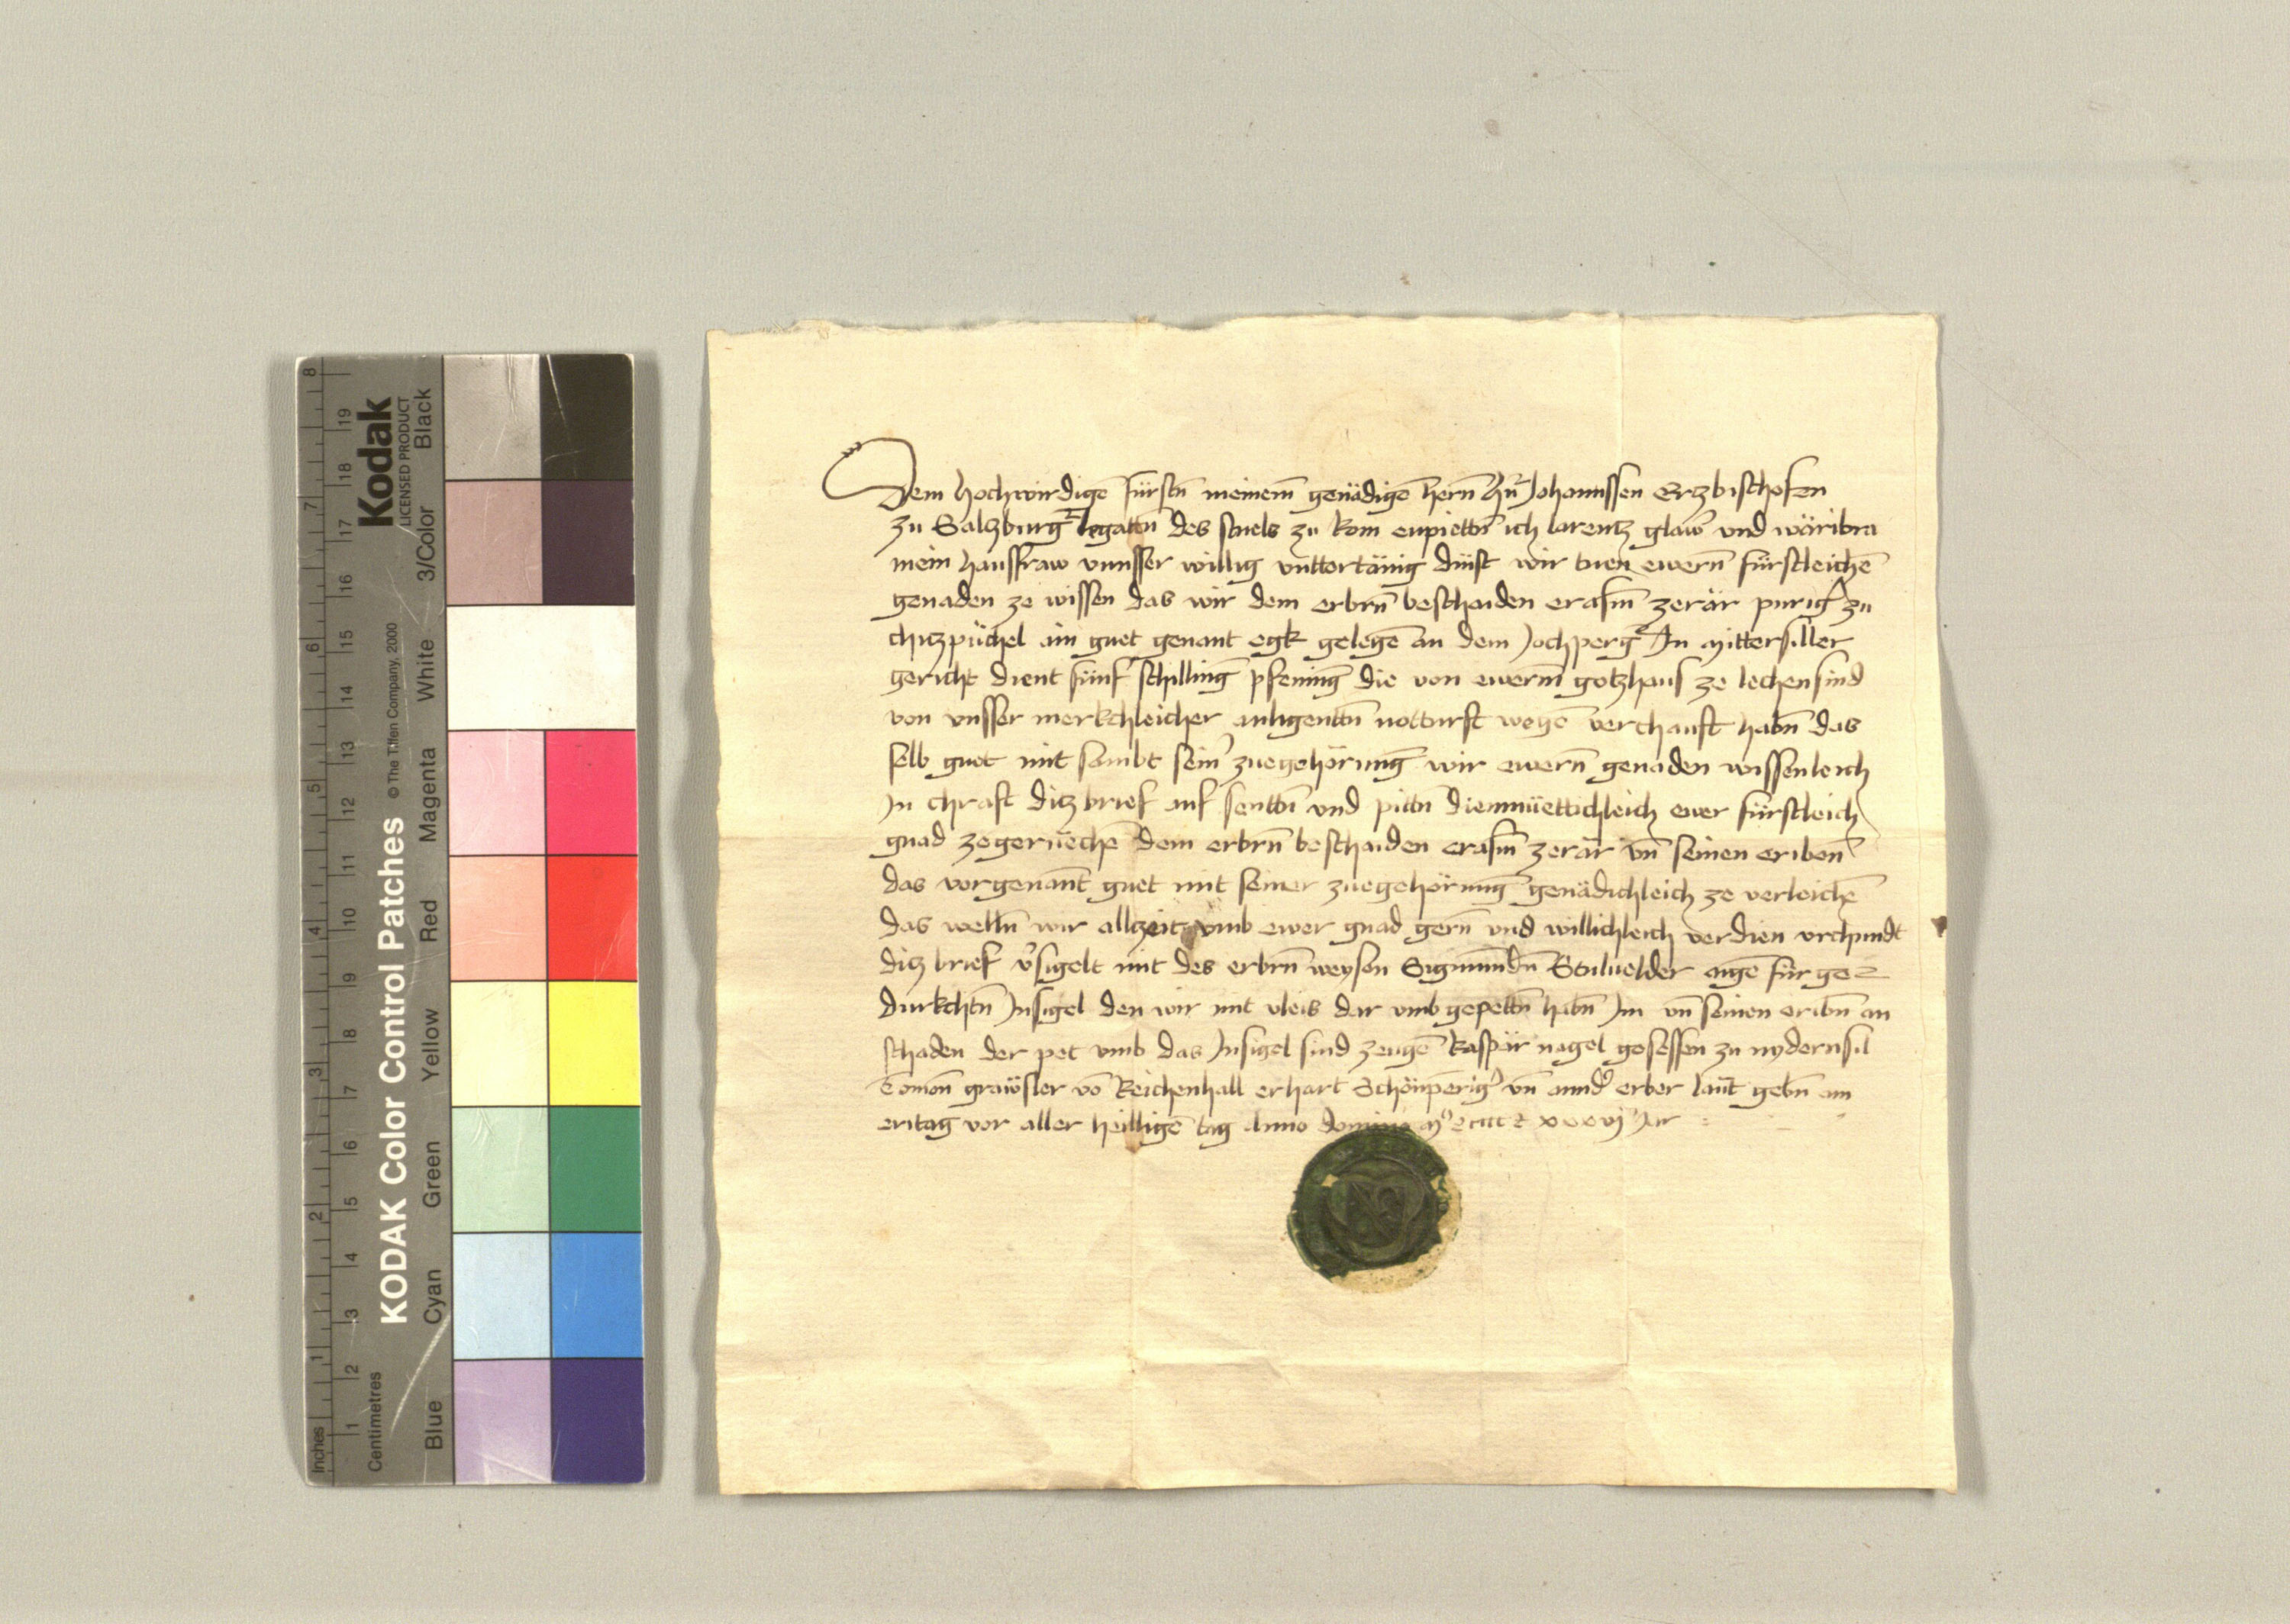 Dem hochwirdigē fürstn̄ meinem̄ genädigē herñ hn̄ Johannssen Erzbischofen
zu Salzburg legattn̄ des stuels zu Rom enpiettn̄ ich larentz glaw̄ vnd wäribra
mein hausfraw vnnsser willig vnttertänig dinst wir tuen ewerñ fürstleichē
genaden ze wissen das wir dem erbrn̄ beschaiden erasm̄ zerär purig̛ zu
chitzpüchel ain guet genant egk gelegē an dem Jochperg In Mittersiller
gericht dient fünf schilling pfening die von ewerm̄ gotzhaus ze lechen sind
von vnsser merkchleicher anligenttn̄ notturft wegē verchauft habn̄ das
selb guet mit sambt sein̛ zuegehörung wir ewerñ genaden wissenleich
In chraft ditz brief auf senttn̄ vnd pittn̄ diemüettichleich ewer fürstleich
gnad zegeruechē dem erbrn̄ beschaiden erasm̄ zerär vn̄ seinen eriben
das vorgenant guet mit seiner zuegehörung genädichleich ze verleichē
das welln̄ wir allzeit vmb ewer gnad gern̄ vnd willichleich verdien vrchundt
ditz brief v̛sigelt mit des erbrn̄ weysen Sigmundn̄ Stuluelder aigē für ge=
durkchtn̄ Insigel den wir mit vleis dar vmb gepettn̄ habn̄ Im vn̄ seinen eribn̄ an
schaden der pet vmb das Insigel sind zeugē kaspär nagel gesessen zu nydernsil
graẅsler vō Reichenhall erhart Schönperig̛ vn̄ annd̛ erber laut gebn̄ am
eritag vor aller heilligē tag Anno domino Mº cccc xxxvj Jar
KODAK Color Control Patches
© The Tiffen Company, 2000
Kodak
LICENSED PRODUCT
Inches 1 2 3 4 5 6 7 8
Centimetres 1 2 3 4 5 6 7 8 9 10 11 12 13 14 15 16 17 18 19
Blue Cyan Green Yellow Red Magenta White 3/Color Black